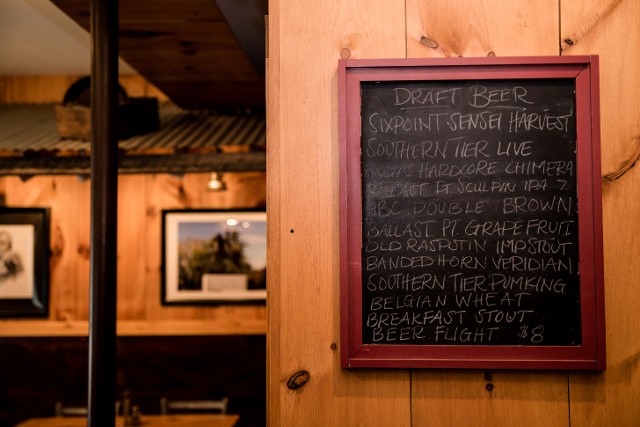 DRAFT BEER
SIXPOINT-SENSEI HARVEST
SOUTHERN TIER LIVE
HARDCORE CHIMERA
PT SCULPIN IPA 7
DOUBLE BROWN
BALLAST PT. GRAPEFRUIT
OLD RASPUTIN IMP STOUT
BANDED HORN VERIDIAN
SOUTHERN TIER PUMKING
BELGIAN WHEAT
BREAKFAST STOUT
BEER FLIGHT $8